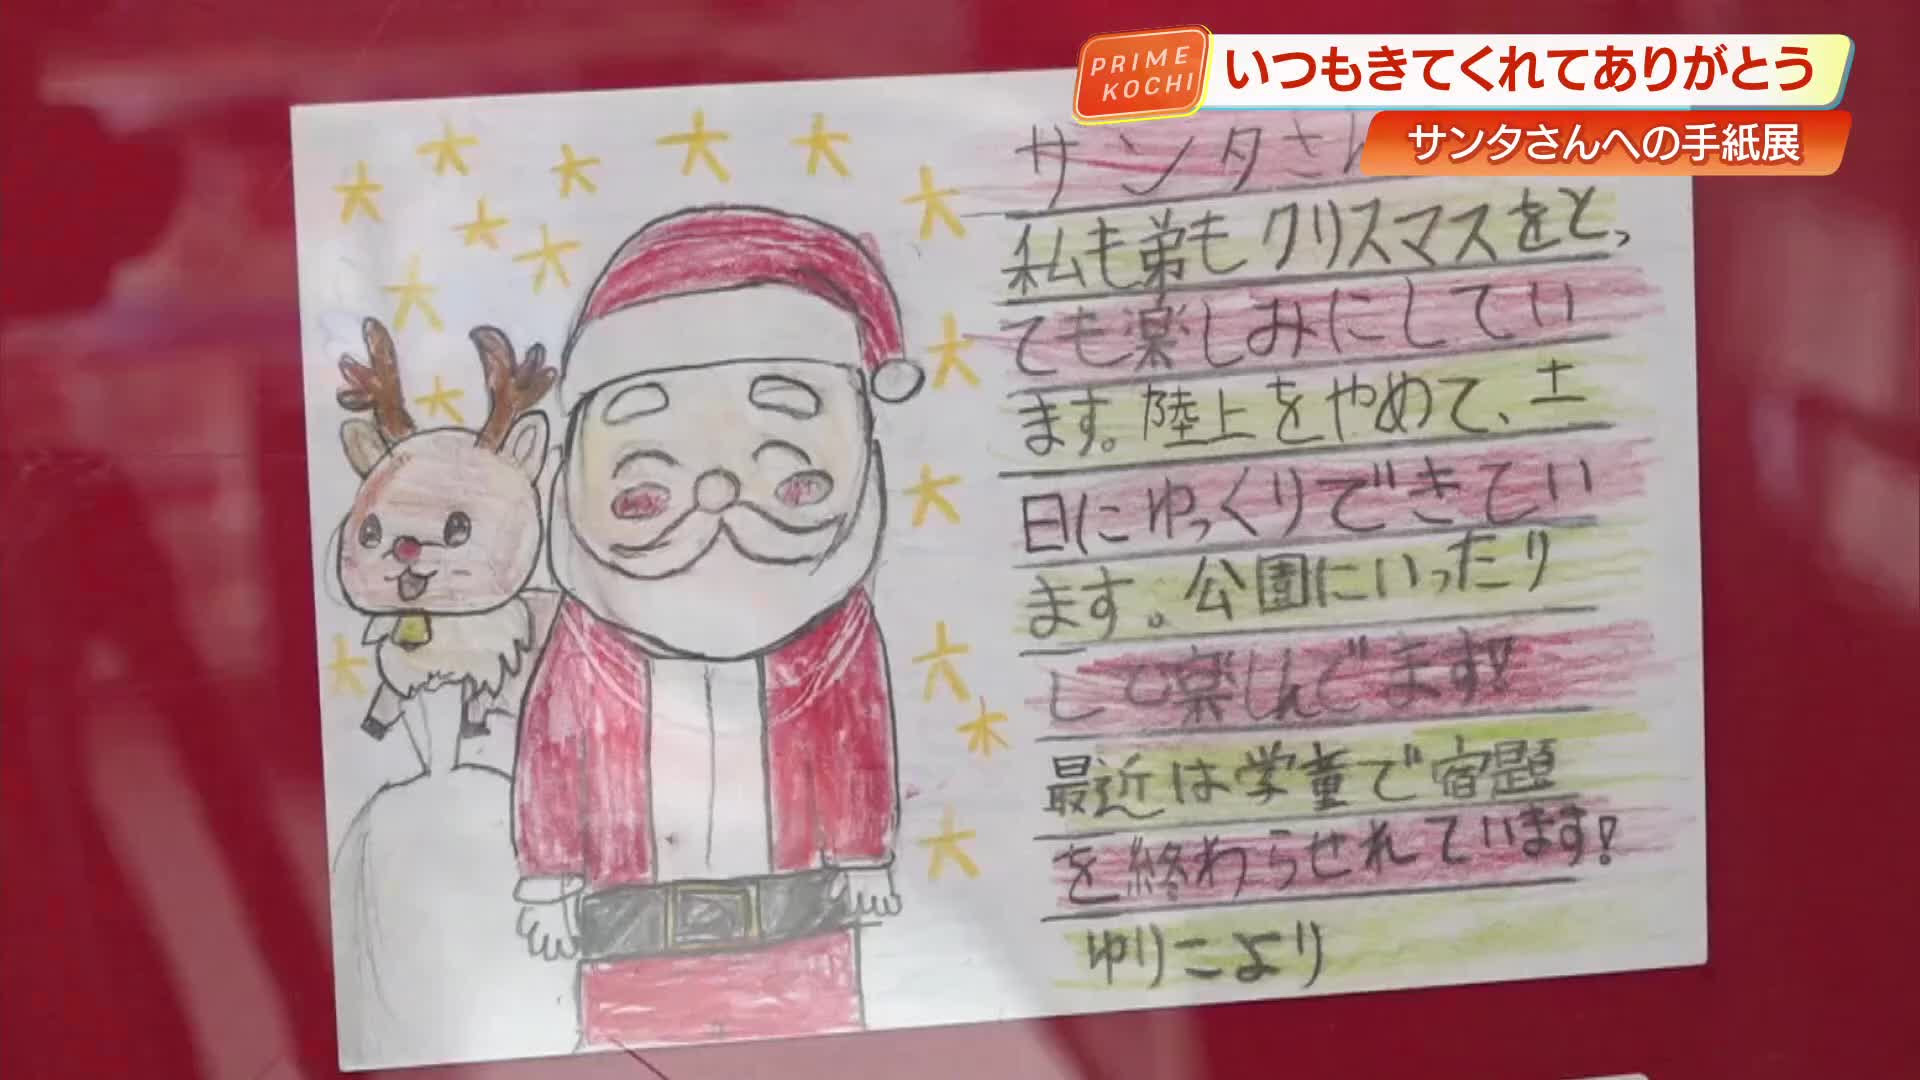 PRIME
KOCHI
いつもきてくれてありがとう
サンタさんへの手紙展
サンタさん
私も弟もクリスマスをとっ
ても楽しみにしてい
ます。陸上をやめて、土
日にゆっくりできてい
ます。公園にいったり
して楽しんでます!!
最近は学童で宿題
を終わらせれています!
ゆりこより